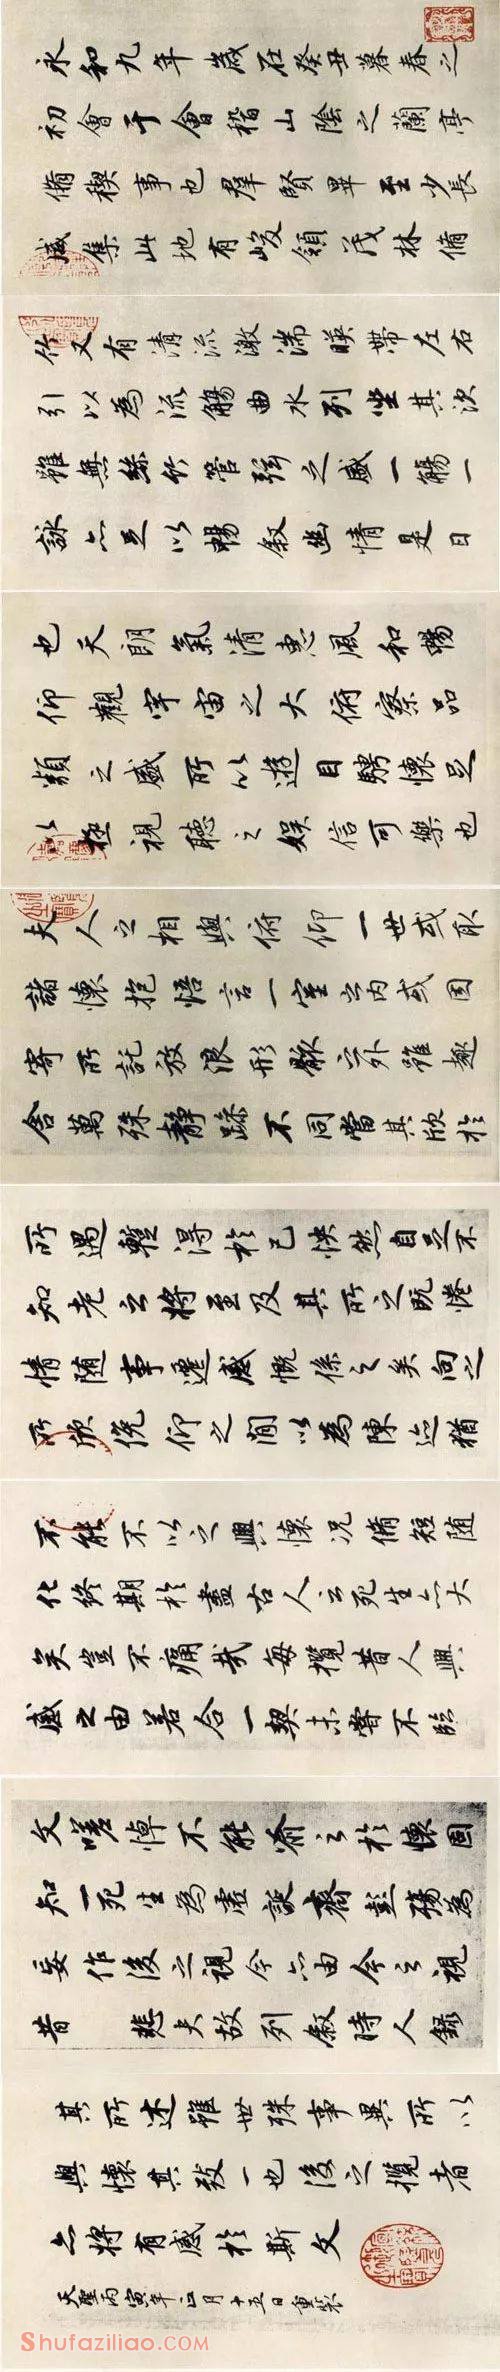 永和九年歲在癸丑暮春之
初會于會稽山陰之蘭亭
脩稧事也群賢畢至少長
咸集此地有峻領茂林脩
竹又有清流激湍暎帶左右
引以為流觴曲水列坐其次
雖無絲竹管弦之盛一觴一
詠亦足以暢敘幽情是日
也天朗氣清惠風和暢
仰觀宇宙之大俯察品
類之盛所以遊目騁懷足
以極視聽之娛信可樂也
夫人之相與俯仰一世或取
諸懷抱悟言一室之內或因
寄所託放浪形骸之外雖趣
舍萬殊靜躁不同當其欣於
所遇暫得於己怏然自足不
知老之將至及其所之既惓
情隨事遷感慨係之矣向之
所欣俛仰之間以為陳迹猶
不能不以之興懷況脩短隨
化終期於盡古人云死生亦大
矣豈不痛哉每攬昔人興
感之由若合一契未嘗不臨
文嗟悼不能喻之於懷固
知一死生為虛誕齊彭殤為
妄作後之視今亦由今之視
昔 悲夫故列敘時人錄
其所述雖世殊事異所以
興懷其致一也後之攬者
亦將有感於斯文
天聖丙寅年正月十五日重裝
Shufaziliao.COM